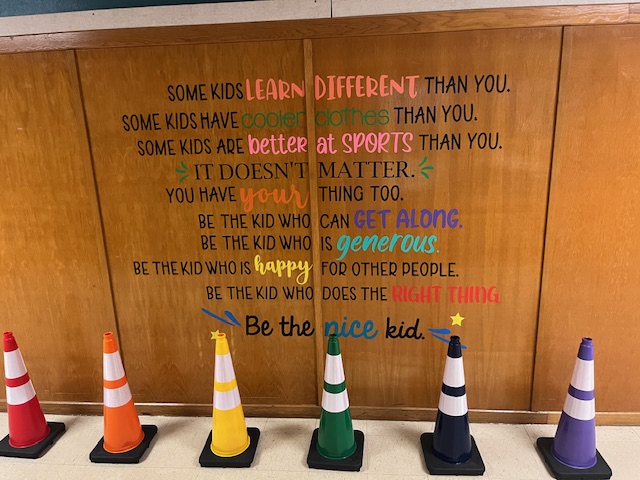 SOME KIDS LEARN DIFFERENT THAN YOU.
SOME KIDS HAVE cooler clothes THAN YOU.
SOME KIDS ARE better at SPORTS THAN YOU.
IT DOESN'T MATTER.
YOU HAVE your THING TOO.
BE THE KID WHO CAN GET ALONG.
BE THE KID WHO IS generous.
BE THE KID WHO IS happy FOR OTHER PEOPLE.
BE THE KID WHO DOES THE RIGHT THING.
Be the nice kid.